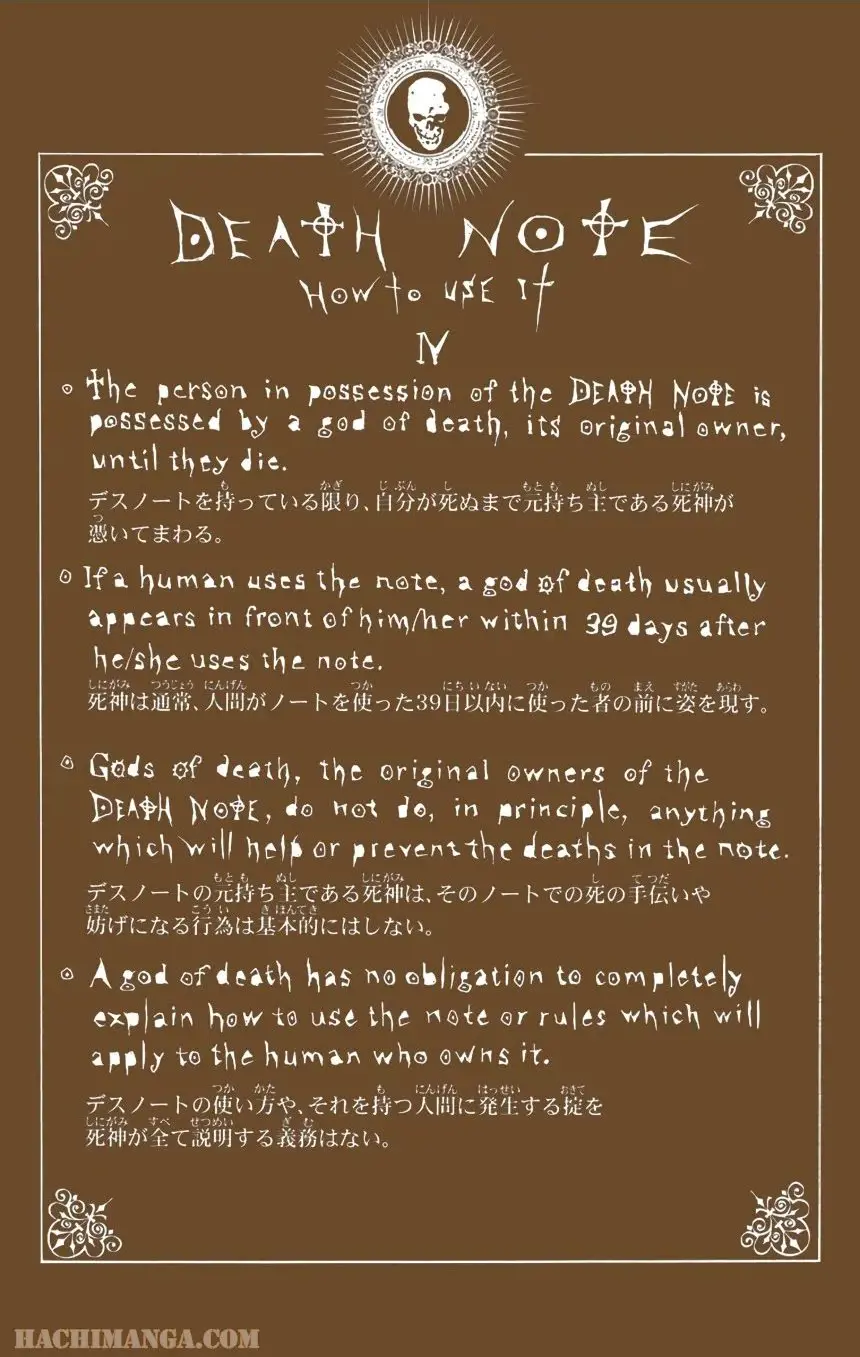 DEATH NOTE
HOW to USE It
IV
The person in possession of the DEATH NOTE is
possessed by a god of death, its original owner,
until they die.
デスノートを持っている限り、自分が死ぬまで元持ち主である死神が
憑いてまわる。
If a human uses the note, a god of death usually
appears in front of him/her within 39 days after
he/she uses the note.
死神は通常、人間がノートを使った39日以内に使った者の前に姿を現す。
Gods of death, the original owners of the
DEATH NOTE, do not do, in principle, anything
which will help or prevent the deaths in the note.
デスノートの元持ち主である死神は、そのノートでの死の手伝いや
妨げになる行為は基本的にはしない。
A god of death has no obligation to completely
explain how to use the note or rules which will
apply to the human who owns it.
デスノートの使い方や、それを持つ人間に発生する掟を
死神が全て説明する義務はない。
HACHIMANGA.COM